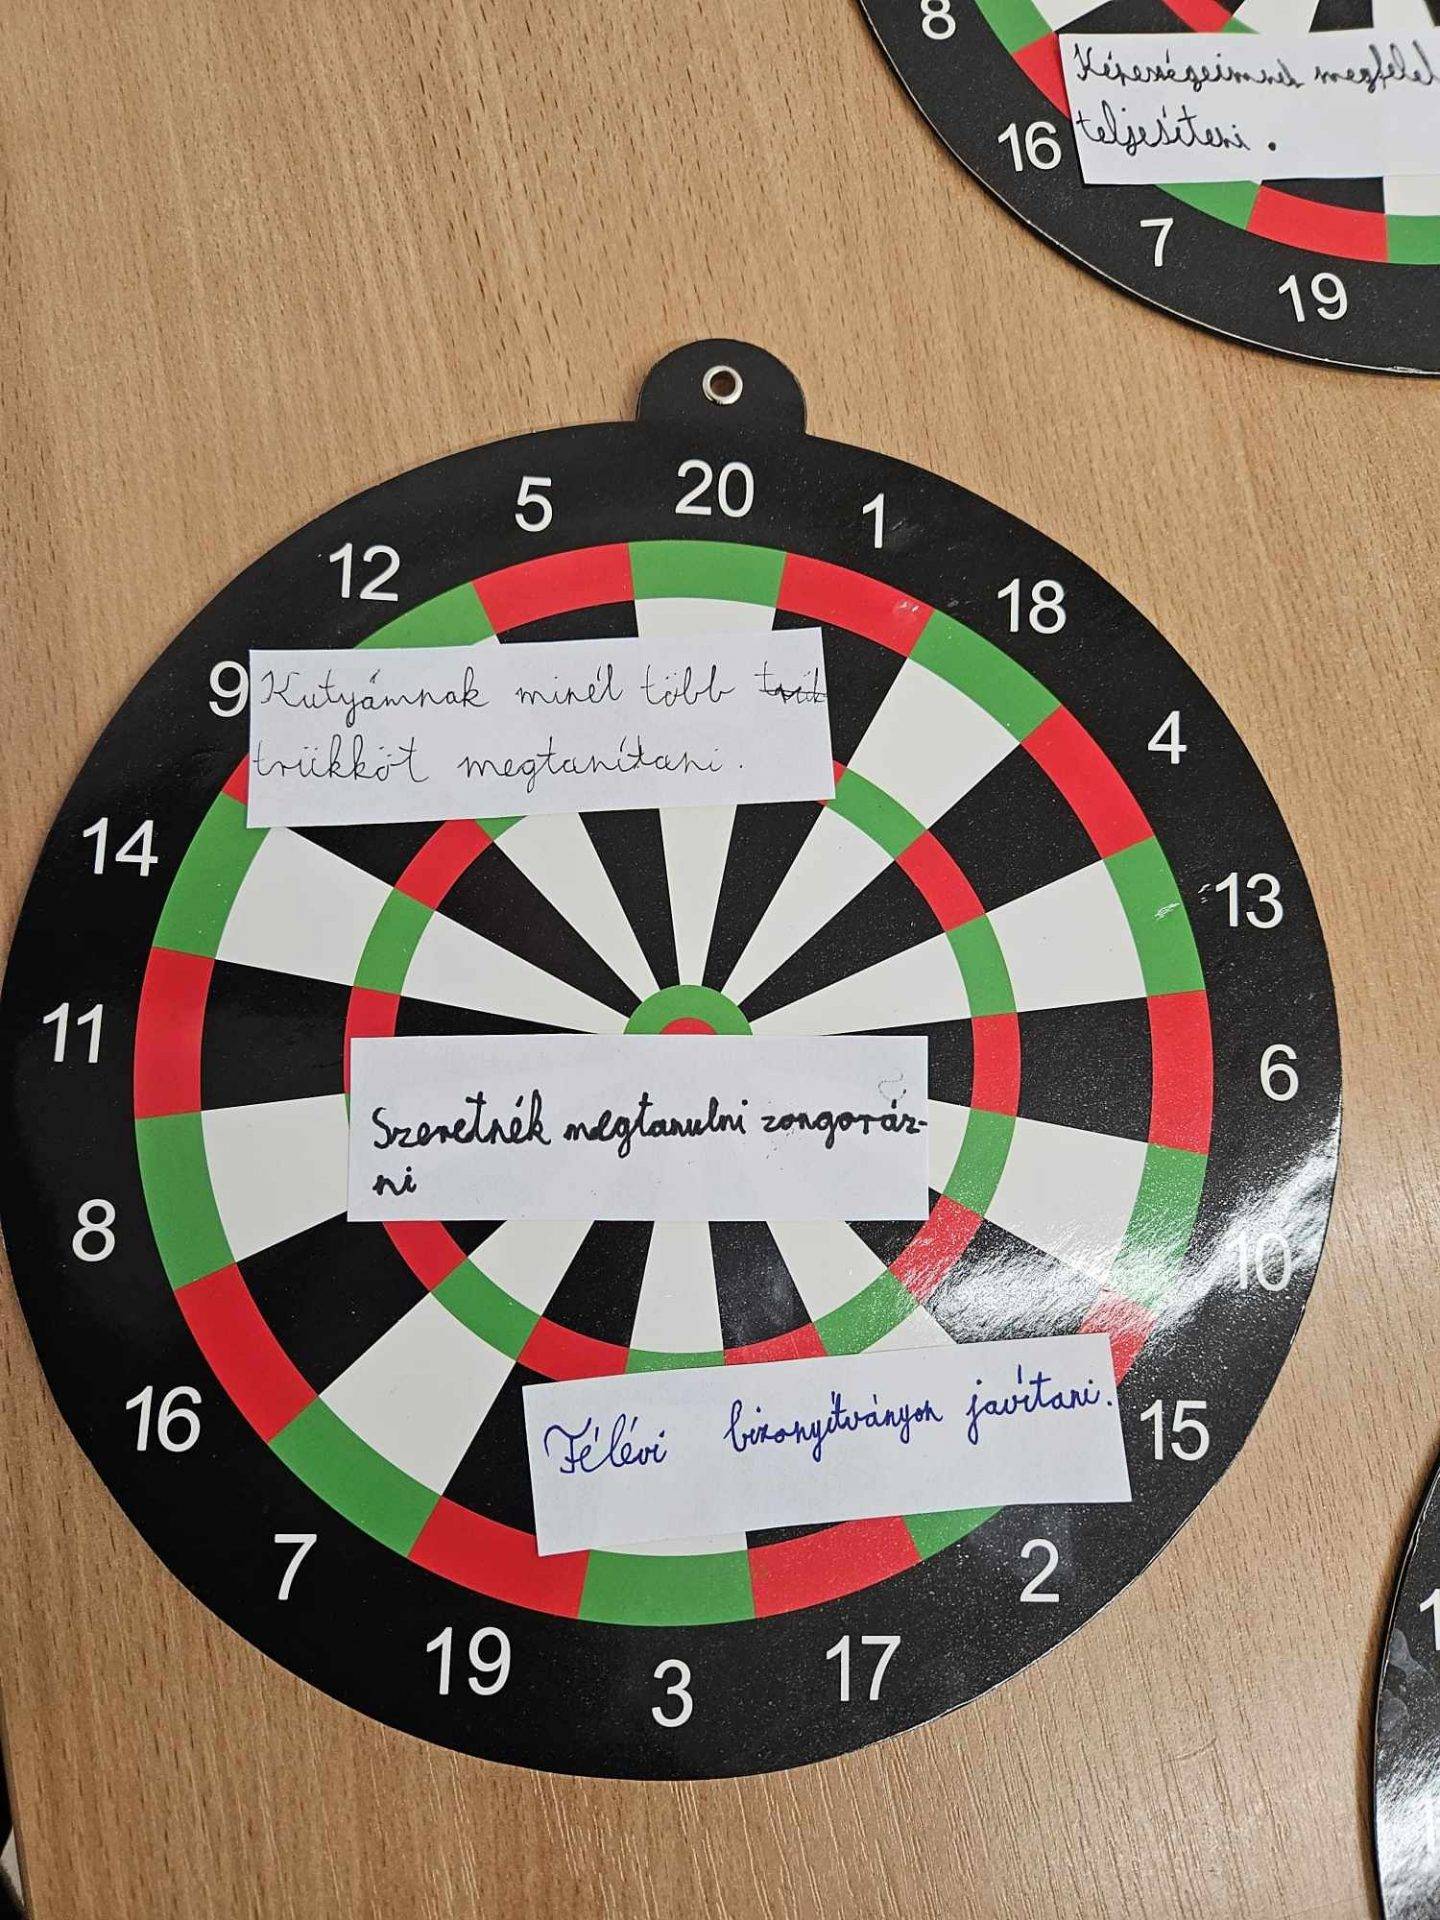 8
Képességeimnek
teljesíteni.
16
7
19
20
5
1
12
18
9
Kutyámnak minél több trük
trükköt megtanítani.
4
14
13
11
6
Szeretnék megtanulni zongoráz-
ni
8
10
Félévi bizonyítványon javítani.
16
15
7
2
19
3
17